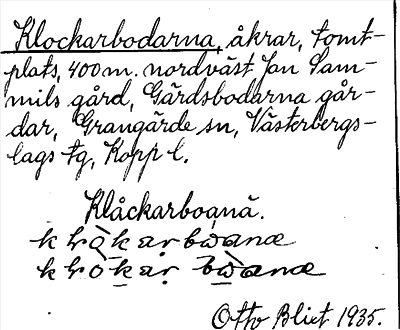 Klockarbodarna, åkrar, tomt-
plats, 400 m. nordväst Jan Sam-
mils gård, Gärdsbodarna går-
dar, Grangärde sn, Västerbergs-
lags tg, Kopp l.
Klåckarboạnã.
Otto Blixt 1935.